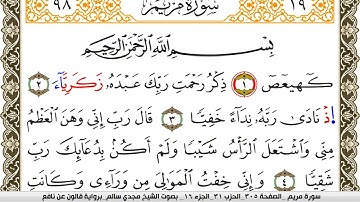 ١٩ سُورَةُ مَرْيَمَ ٩٨
بِسْمِ اللَّهِ الرَّحْمَٰنِ الرَّحِيمِ
كَهيعَصَ ١ ذِكْرُ رَحْمَتِ رَبِّكَ عَبْدَهُۥ زَكَرِيَّآءَ ٢
إِذْ نَادَىٰ رَبَّهُۥ نِدَآءً خَفِيًّا ٣ قَالَ رَبِّ إِنِّي وَهَنَ اَلْعَظْمُ
مِنِّي وَاشْتَعَلَ اَلرَّأْسُ شَيْبًا وَلَمْ أَكُنۢ بِدُعَآئِكَ رَبِّ
شَقِيًّا ٤ وَإِنِّي خِفْتُ اُلْمَوَٰلِيَ مِنْ وَرَآءِي وَكَانَتِ
سورة مريم_ الصفحة ٣٠٥_ الحزب ٣١_ الجزء ١٦_ بصوت الشيخ مجدي سالم_ برواية قالون عن نافع